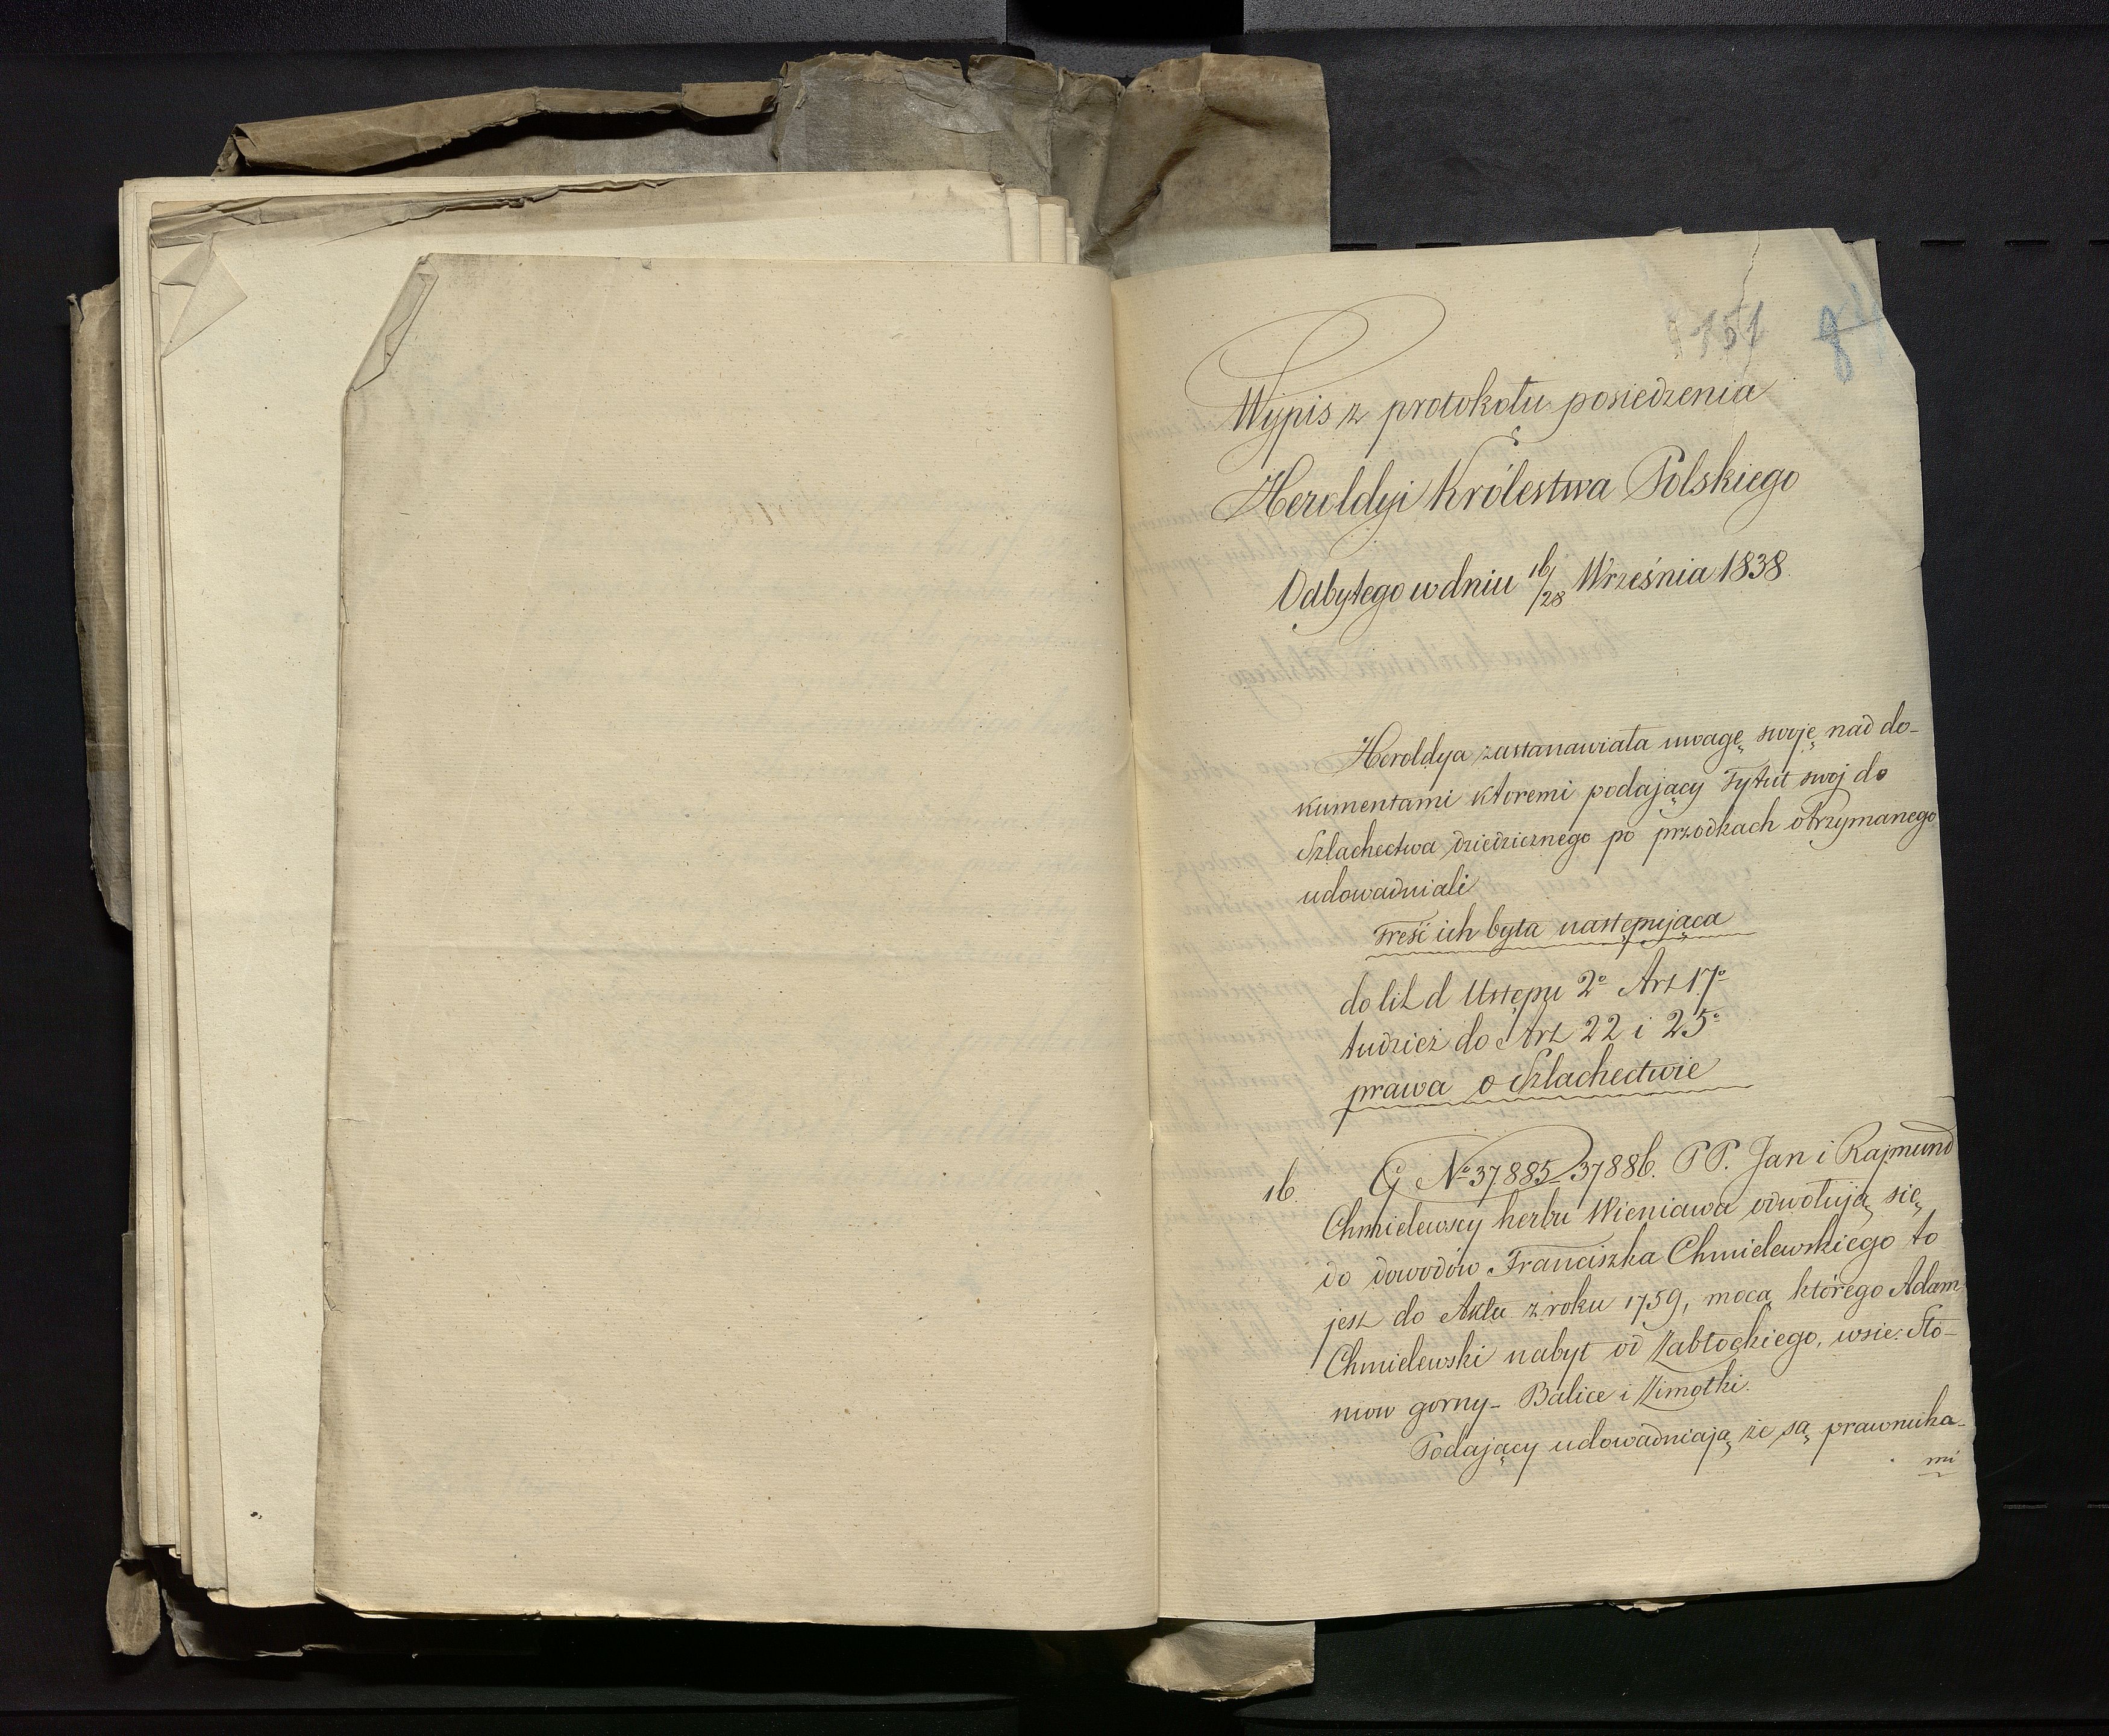 151
Wypis z protokołu posiedzenia
Heroldyi Królestwa Polskiego
Odbytego w dniu 16/28 Września 1838
Heroldya zastanawiała uwagę swoję nad do-
kumentami ktoremi podający Tytuł swoj do
Szlachectwa dziedzicznego po przodkach otrzymanego
udowadniali
Treść ich była następująca
do lit d Ustępu 2º Art 17º
tudzież do Art 22 i 25º
prawa o Szlachectwie
16. G Nº 37885/37886. PP. Jan i Rajmund
Chmielewscy herbu Wieniawa odwołują się
do dowodów Franciszka Chmielewskiego to
jest do Aktu z roku 1759, mocą którego Adam
Chmielewski nabył od Zabłockiego, wsie: Sto-
now gorny - Balice i Zimotki.
Podający udowadniają że są prawnuka-
mi